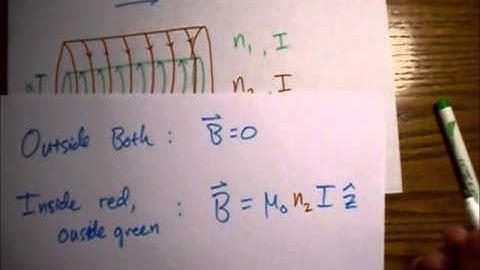 n₁, I
n₂, I
aI
Outside Both : B⃗=0
Inside red, outside green : B⃗ = μ₀ n₂ I ẑ